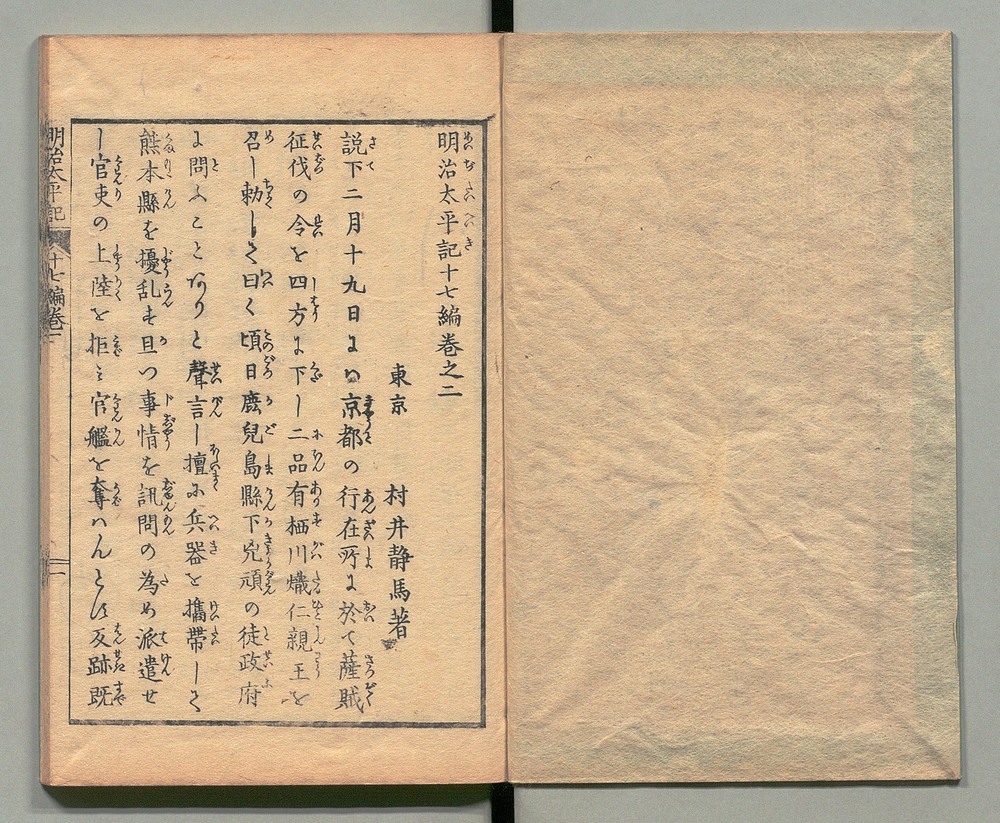 明治太平記十七編巻之二
東京 村井静馬著
説下二月十九日にハ京都の行在所に於て薩賊
征伐の令を四方に下し二品有栖川熾仁親王を
召し勅して曰く頃日鹿兒島縣下兇頑の徒政府
に問ふことありと聲言し擅に兵器を攜帶して
熊本縣を擾乱す且つ事情を訊問の為め派遣せ
し官吏の上陸を拒ミ官艦を奪ハんとす反跡既
明治太平記 十七編巻二
一